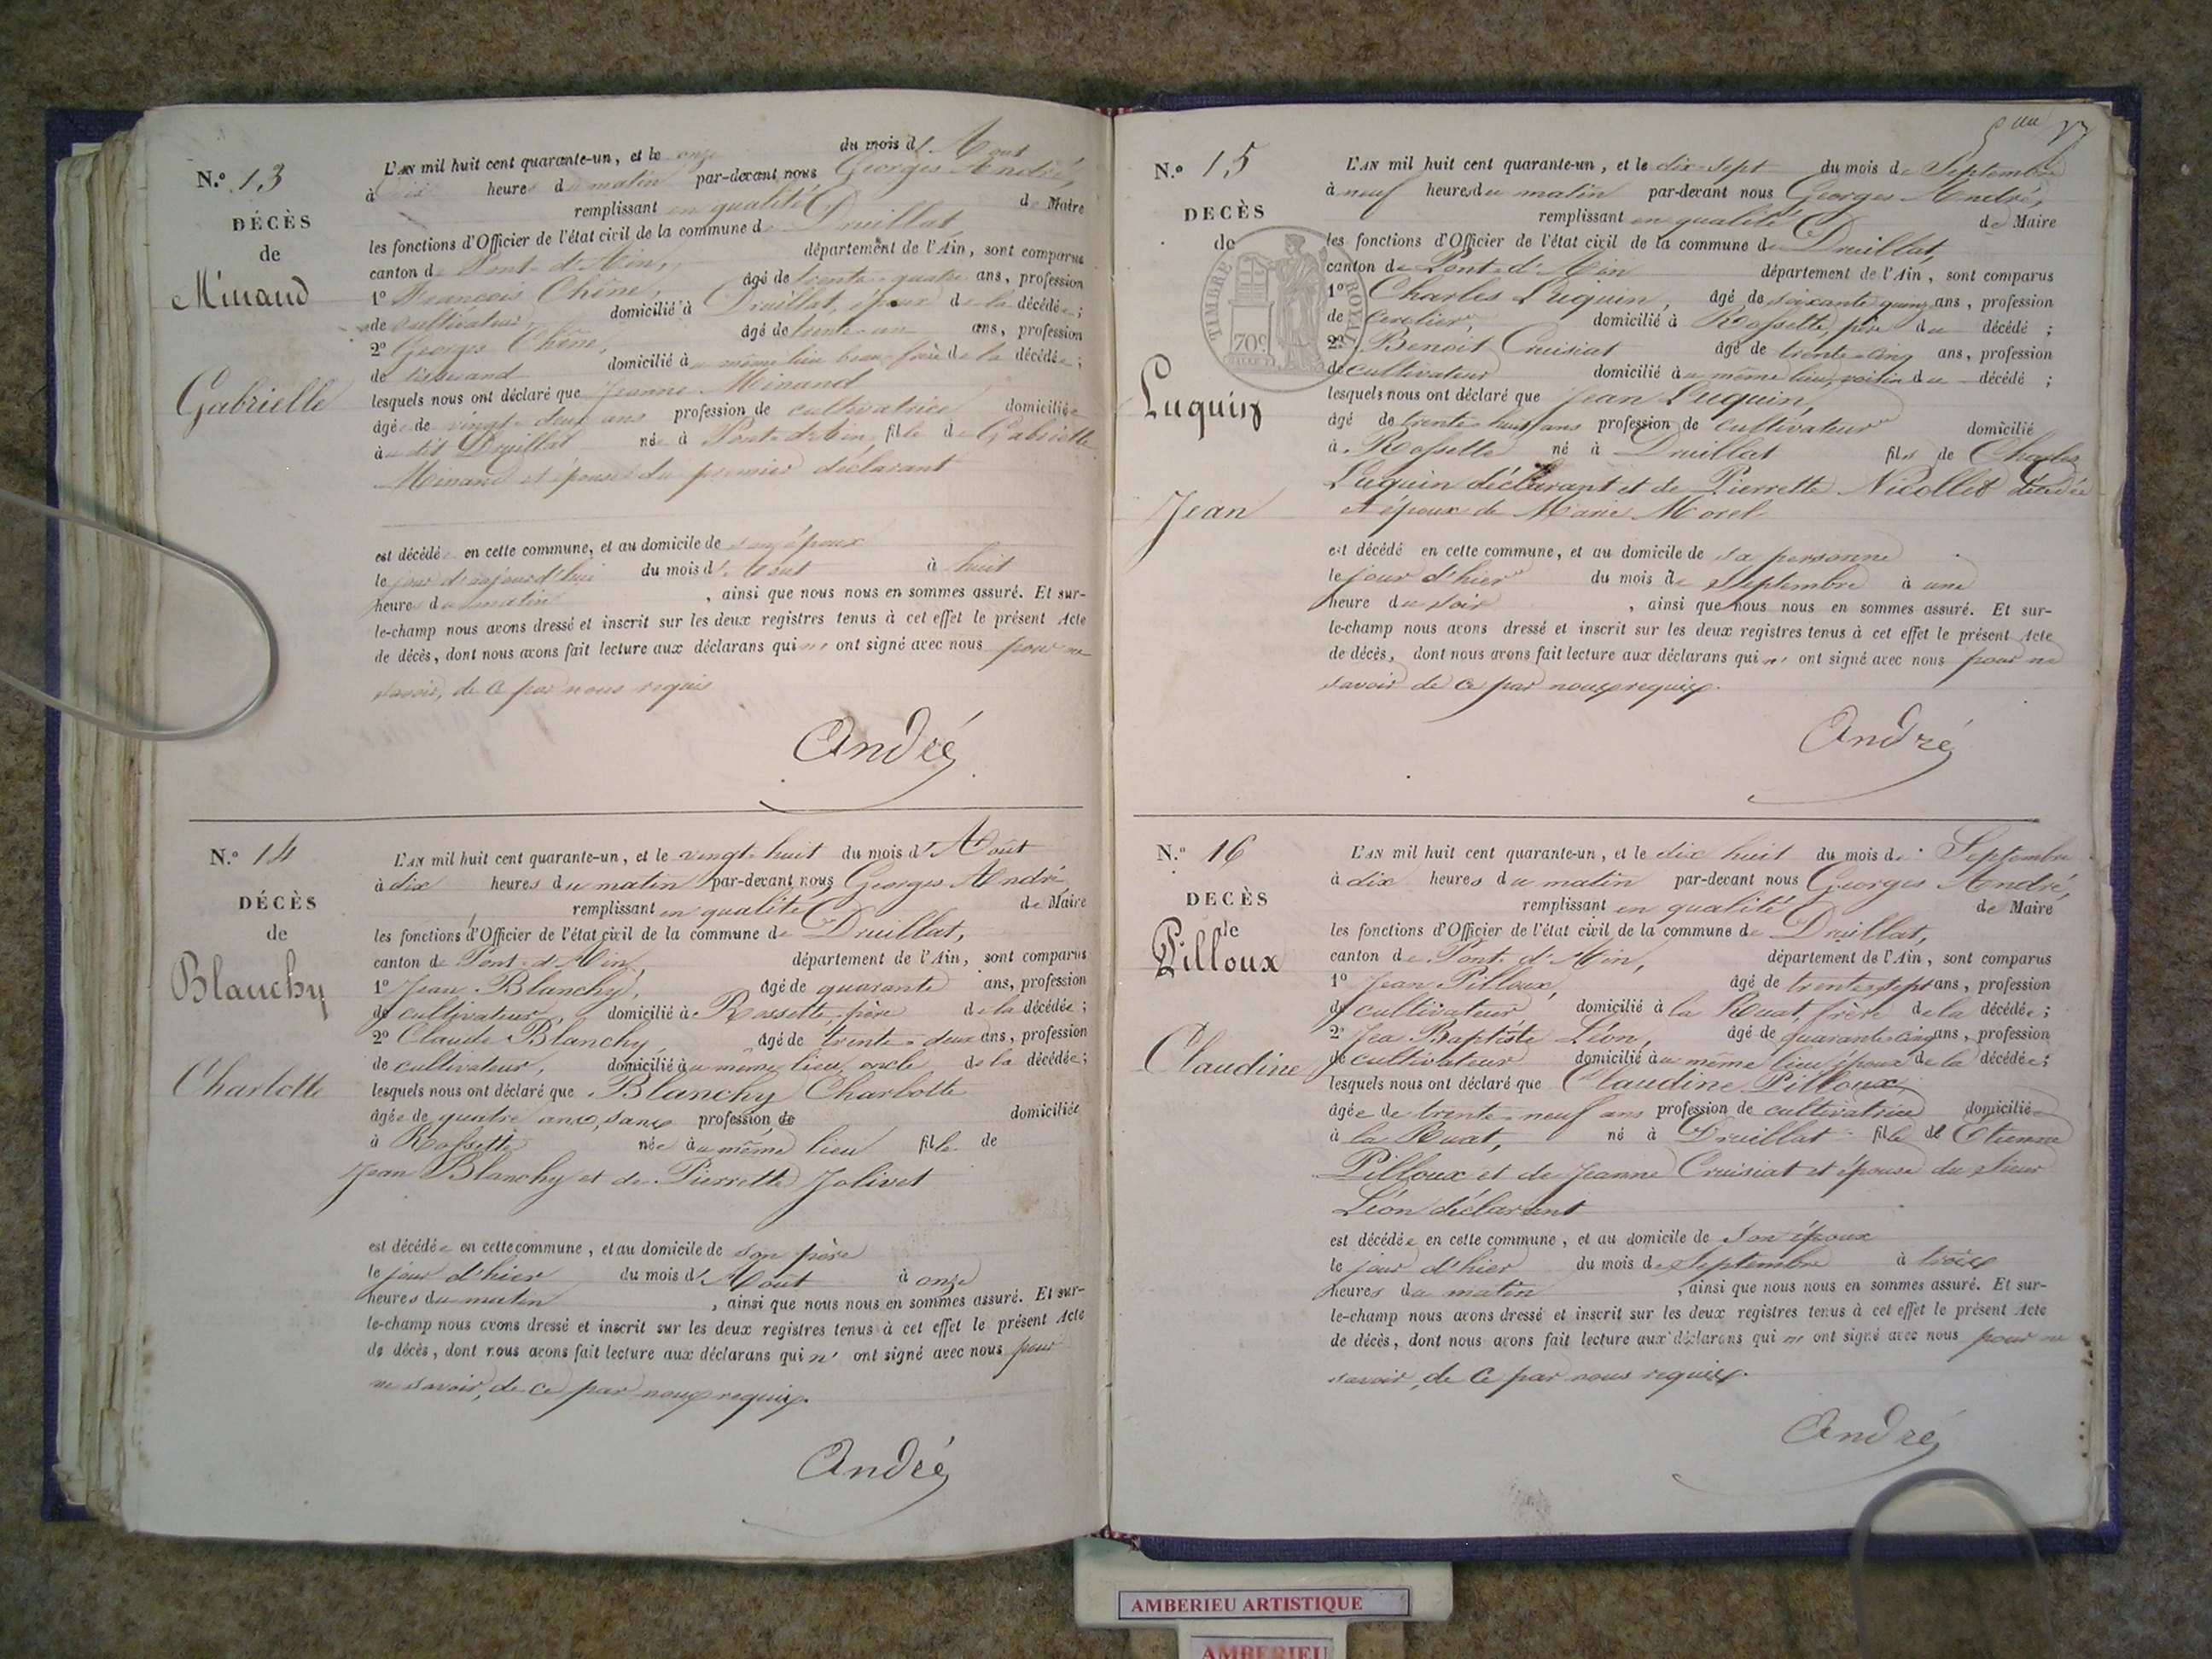 N.º 13
DÉCÈS
de
Minand
Gabrielle
L'AN mil huit cent quarante-un, et le onze du mois d'Aout
à dix heures du matin par-devant nous Georges André,
remplissant en qualité de Maire
les fonctions d'Officier de l'état civil de la commune de Druillat,
canton de Pont-d'Ain, département de l'Ain, sont comparus
1º François Chêne, âgé de trente-quatre ans, profession
de cultivateur, domicilié à Druillat, époux de la décédée;
2º Georges Chêne, âgé de trente-un ans, profession
de tisserand domicilié au même lieu beau-frère de la décédée;
lesquels nous ont déclaré que Jeanne Minand
âgée de vingt-deux ans profession de cultivatrice domiciliée
à dit Druillat née à Pont-d'Ain, fille de Gabrielle
Minand et épouse du premier déclarant
est décédée en cette commune, et au domicile de son époux
le jour d'aujourd'hui du mois d'Aout à huit
heures du matin, ainsi que nous nous en sommes assuré. Et sur-
le-champ nous avons dressé et inscrit sur les deux registres tenus à cet effet le présent Acte
de décès, dont nous avons fait lecture aux déclarans qui n' ont signé avec nous pour ne
savoir, de ce par nous requis
André
N.º 14
DÉCÈS
de
Blanchy
Charlotte
L'AN mil huit cent quarante-un, et le vingt-huit du mois d'Août
à dix heures du matin par-devant nous Georges André
remplissant en qualité de Maire
les fonctions d'Officier de l'état civil de la commune de Druillat,
canton de Pont-d'Ain, département de l'Ain, sont comparus
1º Jean Blanchy, âgé de quarante ans, profession
de cultivateur, domicilié à Rossette, père de la décédée;
2º Claude Blanchy, âgé de trente-deux ans, profession
de cultivateur, domicilié au même lieu, oncle de la décédée;
lesquels nous ont déclaré que Blanchy Charlotte
âgée de quatre ans, sans profession de domiciliée
à Rossette née au même lieu fille de
Jean Blanchy et de Pierrette Jolivet
est décédée en cette commune, et au domicile de son père
le jour d'hier du mois d'Août à onze
heures du matin, ainsi que nous nous en sommes assuré. Et sur-
le-champ nous avons dressé et inscrit sur les deux registres tenus à cet effet le présent Acte
de décès, dont nous avons fait lecture aux déclarans qui n' ont signé avec nous pour
ne savoir, de ce par nous requis.
André
N.º 15
DECÈS
de
TIMBRE ROYAL
70c
Luquin
Jean
L'AN mil huit cent quarante-un, et le dix-sept du mois de Septembre
à neuf heures du matin par-devant nous Georges André,
remplissant en qualité de Maire
les fonctions d'Officier de l'état civil de la commune de Druillat,
canton de Pont-d'Ain département de l'Ain, sont comparus
1º Charles Luquin, âgé de soixante quinze ans, profession
de cerclier, domicilié à Rossette, père du décédé;
2º Benoit Cruisiat âgé de trente-cinq ans, profession
de cultivateur domicilié au même lieu, voisin du décédé;
lesquels nous ont déclaré que Jean Luquin,
âgé de trente-huit ans profession de cultivateur domicilié
à Rossette né à Druillat fils de Charles
Luquin déclarant et de Pierrette Nicollet décédée
et époux de Marie Morel
est décédé en cette commune, et au domicile de sa personne
le jour d'hier du mois de Septembre à une
heure du soir, ainsi que nous nous en sommes assuré. Et sur-
le-champ nous avons dressé et inscrit sur les deux registres tenus à cet effet le présent Acte
de décès, dont nous avons fait lecture aux déclarans qui n' ont signé avec nous pour ne
savoir de ce par nous requis.
André
N.º 16
DECÈS
de
Pilloux
Claudine
L'AN mil huit cent quarante-un, et le dix huit du mois de Septembre
à dix heures du matin par-devant nous Georges André,
remplissant en qualité de Maire
les fonctions d'Officier de l'état civil de la commune de Druillat,
canton de Pont-d'Ain, département de l'Ain, sont comparus
1º Jean Pilloux, âgé de trente sept ans, profession
de cultivateur domicilié à la Ruat, frère de la décédée;
2º Jea Baptiste Léon, âgé de quarante cinq ans, profession
de cultivateur domicilié au même lieu époux de la décédée;
lesquels nous ont déclaré que Claudine Pilloux
âgée de trente-neuf ans profession de cultivatrice domiciliée
à la Ruat, né à Druillat fille de Etienne
Pilloux et de Jeanne Cruisiat et épouse du Sieur
Léon déclarant
est décédée en cette commune, et au domicile de son époux
le jour d'hier du mois de Septembre à trois
heures du matin, ainsi que nous nous en sommes assuré. Et sur-
le-champ nous avons dressé et inscrit sur les deux registres tenus à cet effet le présent Acte
de décès, dont nous avons fait lecture aux déclarans qui n' ont signé avec nous pour ne
savoir, de ce par nous requis.
André
AMBERIEU ARTISTIQUE
AMBERIEU